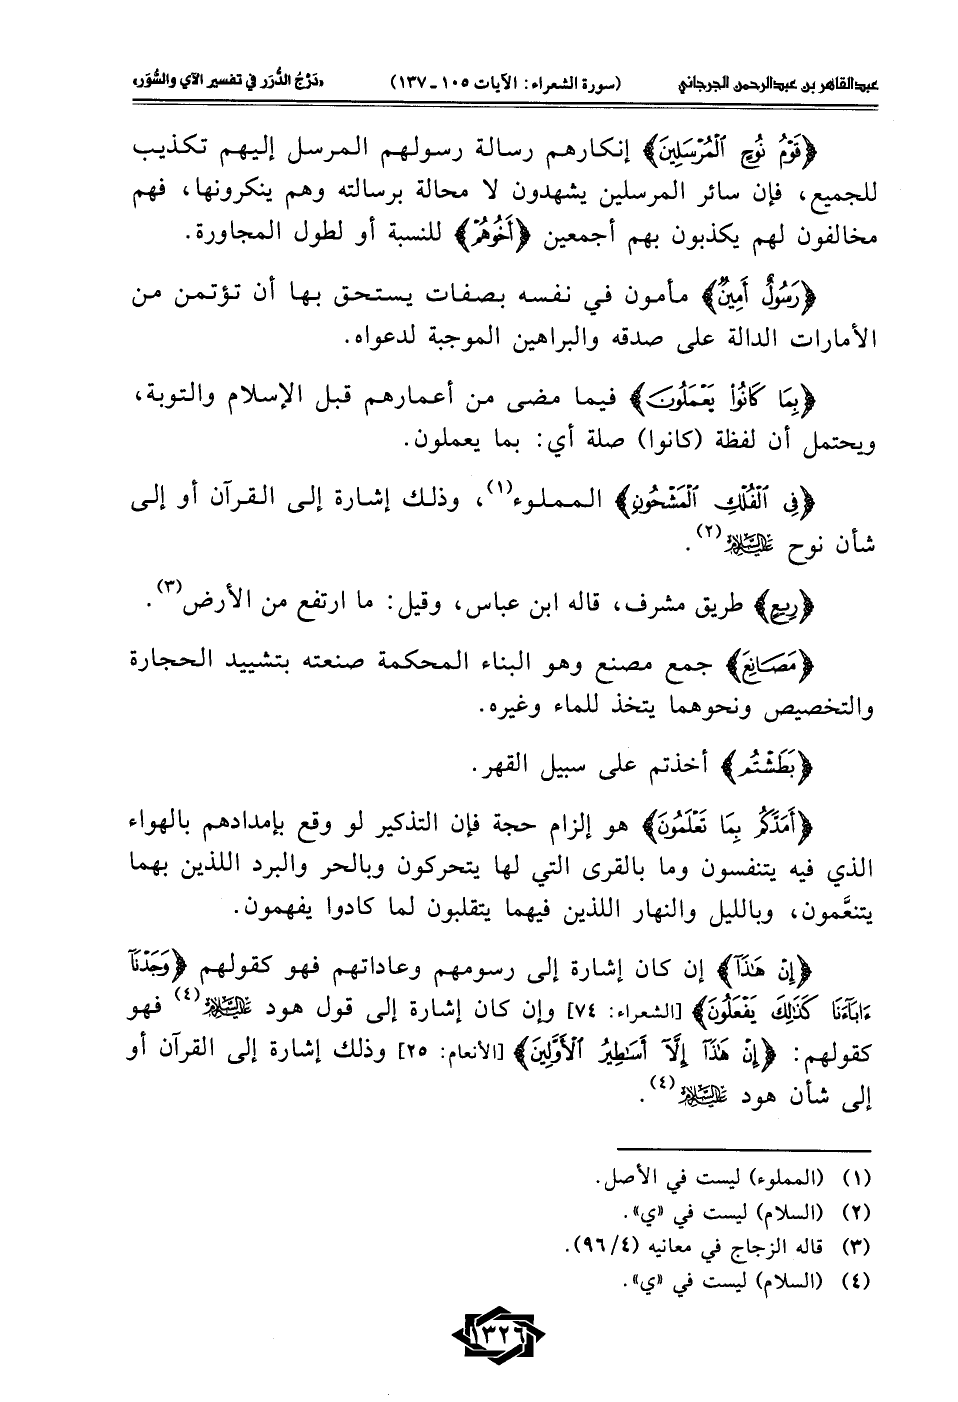 عبدالقاهر بن عبدالرحمن الجرجاني (سورة الشعراء: الآيات ١٠٥ ـ ١٣٧) «دَرْجُ الدُّرَر في تفسير الآي والسُّوَر»
﴿قَوْمُ نُوحٍ الْمُرْسَلِينَ﴾ إنكارهم رسالة رسولهم المرسل إليهم تكذيب
للجميع، فإن سائر المرسلين يشهدون لا محالة برسالته وهم ينكرونها، فهم
مخالفون لهم يكذبون بهم أجمعين ﴿أَخُوهُمْ﴾ للنسبة أو لطول المجاورة.
﴿رَسُولٌ أَمِينٌ﴾ مأمون في نفسه بصفات يستحق بها أن تؤتمن من
الأمارات الدالة على صدقه والبراهين الموجبة لدعواه.
﴿بِمَا كَانُوا يَعْمَلُونَ﴾ فيما مضى من أعمارهم قبل الإسلام والتوبة،
ويحتمل أن لفظة (كانوا) صلة أي: بما يعملون.
﴿فِي الْفُلْكِ الْمَشْحُونِ﴾ المملوء(١)، وذلك إشارة إلى القرآن أو إلى
شأن نوح عليه السلام(٢).
﴿رِيعٍ﴾ طريق مشرف، قاله ابن عباس، وقيل: ما ارتفع من الأرض(٣).
﴿مَصَانِعَ﴾ جمع مصنع وهو البناء المحكمة صنعته بتشييد الحجارة
والتخصيص ونحوهما يتخذ للماء وغيره.
﴿بَطَشْتُم﴾ أخذتم على سبيل القهر.
﴿أَمَدَّكُم بِمَا تَعْلَمُونَ﴾ هو إلزام حجة فإن التذكير لو وقع بإمدادهم بالهواء
الذي فيه يتنفسون وما بالقرى التي لها يتحركون وبالحر والبرد اللذين بهما
يتنعَّمون، وبالليل والنهار اللذين فيهما يتقلبون لما كادوا يفهمون.
﴿إِنْ هَٰذَا﴾ إن كان إشارة إلى رسومهم وعاداتهم فهو كقولهم ﴿وَجَدْنَا
ءَابَآءَنَا كَذَٰلِكَ يَفْعَلُونَ﴾ [الشعراء: ٧٤] وإن كان إشارة إلى قول هود عليه السلام(٤) فهو
كقولهم: ﴿إِنْ هَٰذَآ إِلَّآ أَسَاطِيرُ الْأَوَّلِينَ﴾ [الأنعام: ٢٥] وذلك إشارة إلى القرآن أو
إلى شأن هود عليه السلام(٤).
(١) (المملوء) ليست في الأصل.
(٢) (السلام) ليست في «ي».
(٣) قاله الزجاج في معانيه (٩٦/٤).
(٤) (السلام) ليست في «ي».
١٣٢٦